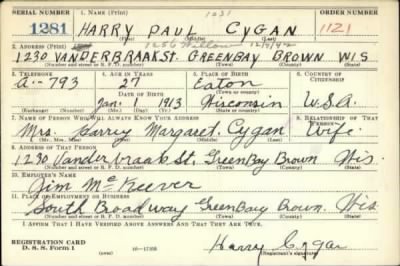 1231
SERIAL NUMBER 1. NAME (Print) ORDER NUMBER
1281 HARRY PAUL CYGAN 1121
(First) (Middle) (Last)
2. ADDRESS (Print) 1256 Willow 12/9/42
1230 VANDERBRAAK ST. GREENBAY BROWN WIS
(Number and street or R. F. D. number) (Town) (County) (State)
3. TELEPHONE 4. AGE IN YEARS 5. PLACE OF BIRTH 6. COUNTRY OF CITIZENSHIP
A-793 27 Eaton
DATE OF BIRTH (Town or county)
Jan. 1 1913 Wisconsin U.S.A.
(Exchange) (Number) (Mo.) (Day) (Yr.) (State or country)
7. NAME OF PERSON WHO WILL ALWAYS KNOW YOUR ADDRESS 8. RELATIONSHIP OF THAT PERSON
Mrs. Harry Margaret Cygan Wife
(Mr., Mrs., Miss) (First) (Middle) (Last)
9. ADDRESS OF THAT PERSON
1230 Vanderbraak St. Green Bay Brown Wis.
(Number and street or R. F. D. number) (Town) (County) (State)
10. EMPLOYER'S NAME
Jim McKeever
11. PLACE OF EMPLOYMENT OR BUSINESS
South Broadway Green Bay Brown. Wis
(Number and street or R. F. D. number) (Town) (County) (State)
I AFFIRM THAT I HAVE VERIFIED ABOVE ANSWERS AND THAT THEY ARE TRUE.
REGISTRATION CARD
D. S. S. Form 1 (over) 16-17105 Harry Cygan
(Registrant's signature)